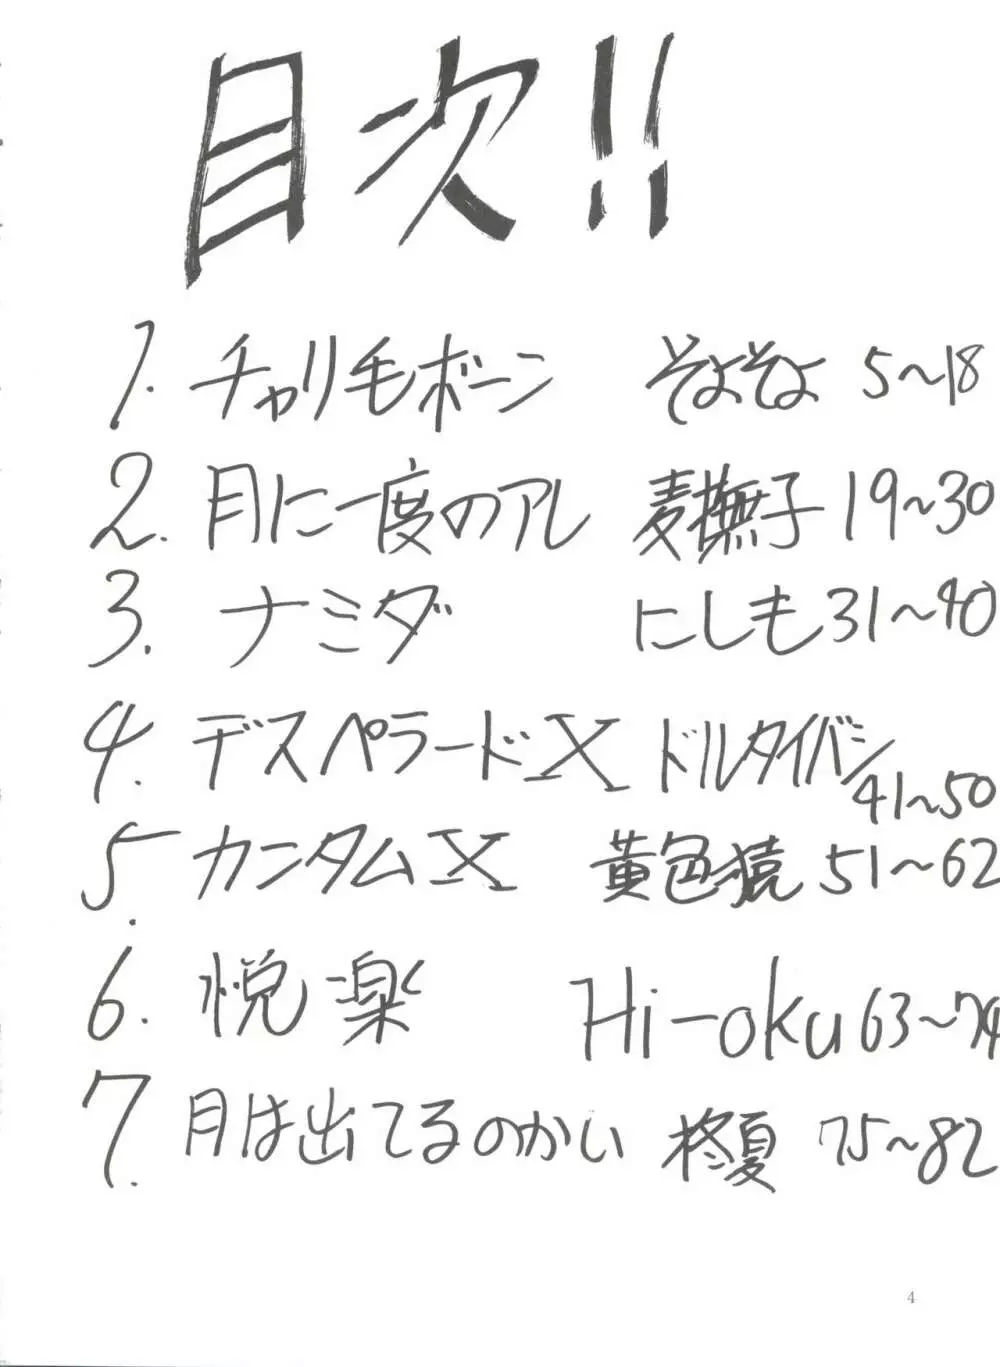 目次!!
1. チャリ毛ボーン そよそよ 5~18
2. 月に一度のアレ 麦撫子 19~30
3. ナミダ にしも 31~40
4. デスペラードX ドルタイバシ 41~50
5. カンタムX 黄色猿 51~62
6. 悦楽 Hi-oku 63~74
7. 月は出てるのかい 柊夏 75~82
4